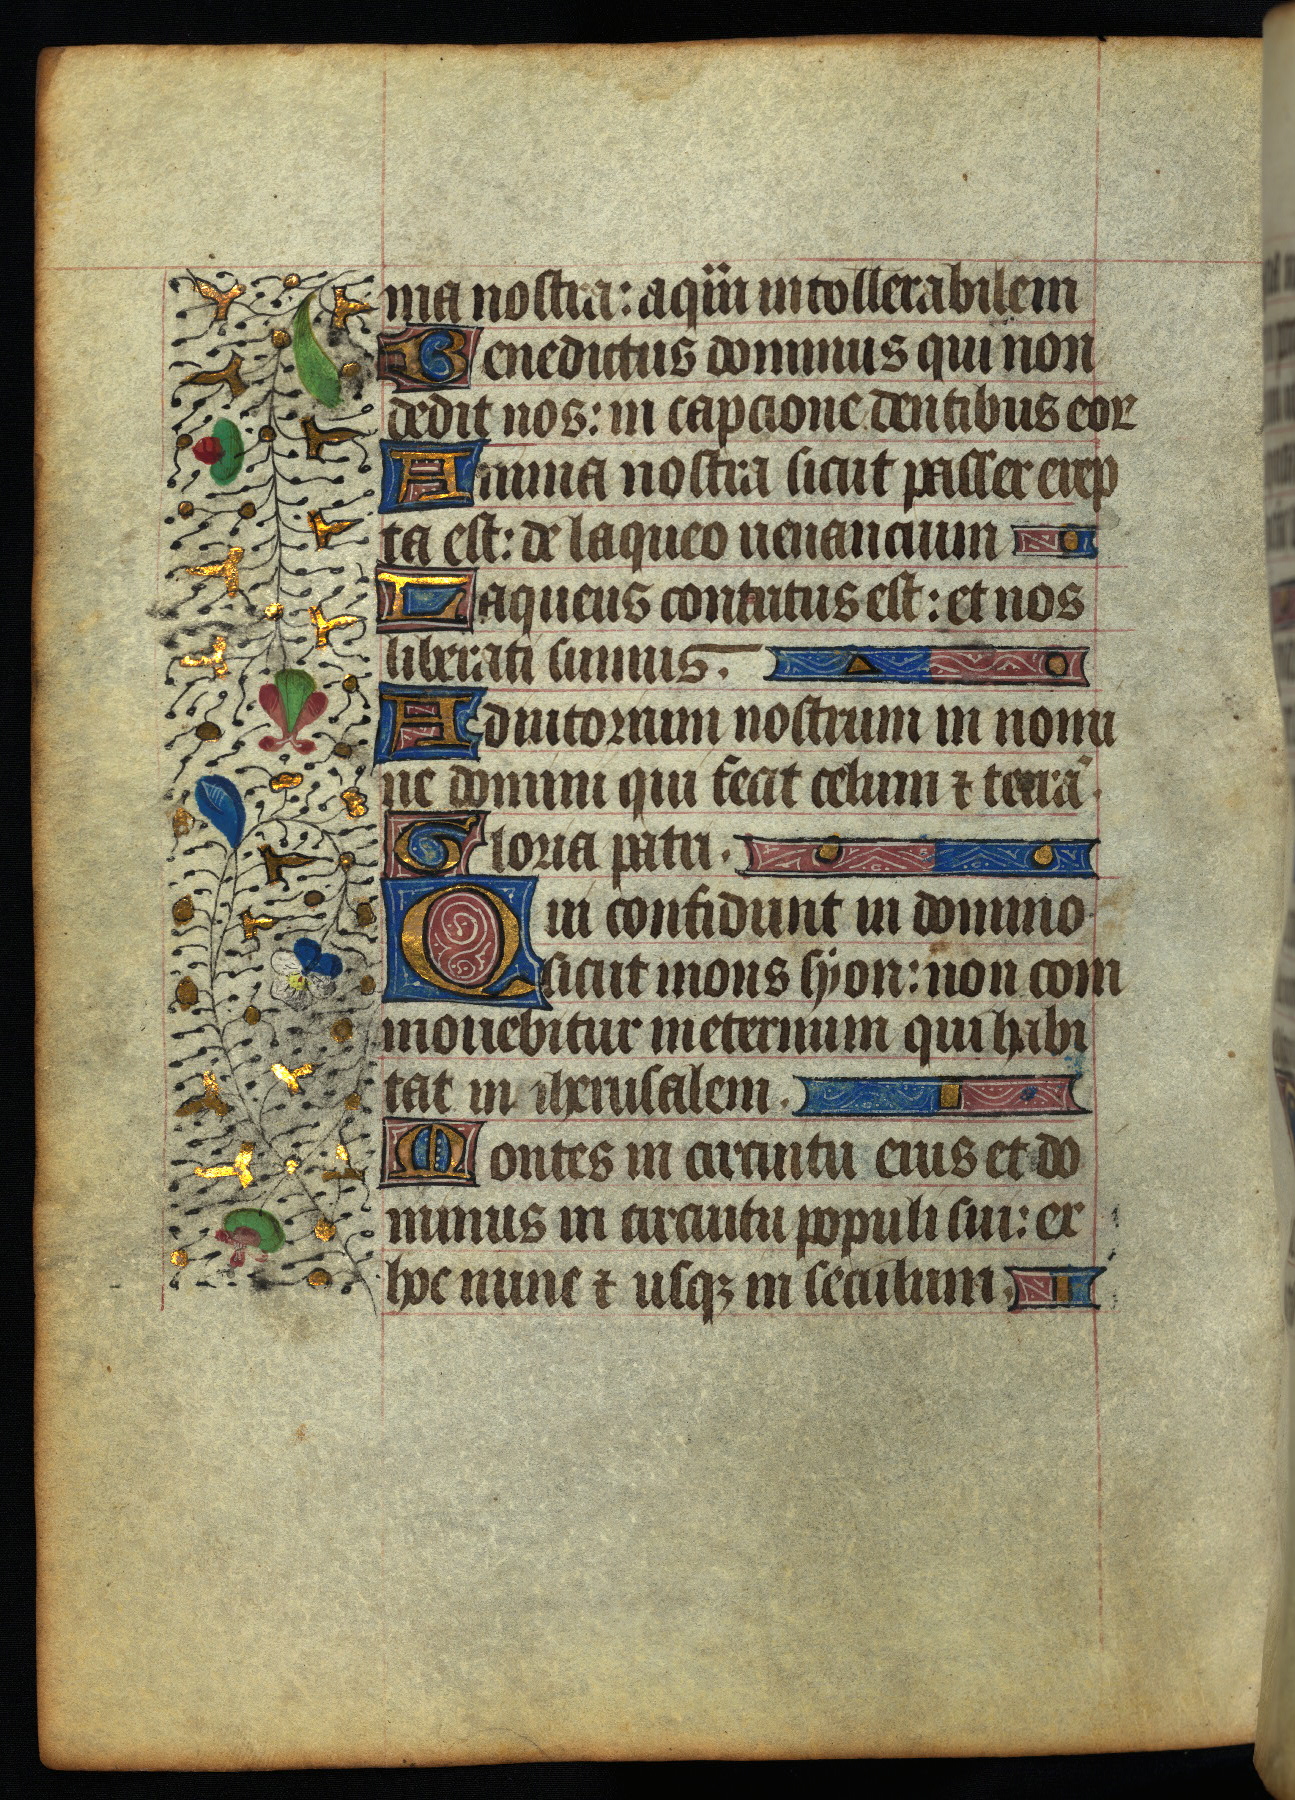 ma nostra: aquā intollerabilem
Benedictus dominus qui non
dedit nos: in capcione dentibus eoꝝ
Anima nostra sicut passer erep
ta est: de laqueo uenancium
Laqueus contritus est: et nos
liberati sumus.
Adiutorium nostrum in nomi
ne domini qui fecit celum ⁊ terrā.
Gloria patri.
Qui confidunt in domino
sicut mons syon: non com
mouebitur ineternum qui habi
tat in iherusalem.
Montes in circuitu eius et do
minus in circuitu populi sui: ex
hoc nunc ⁊ usqꝫ in seculum.